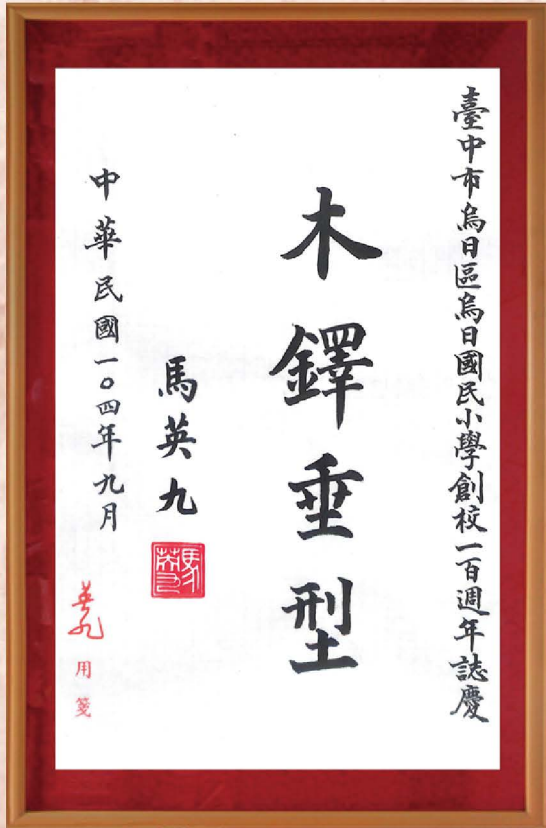 臺中市烏日區烏日國民小學創校一百週年誌慶
木鐸垂型
馬英九
中華民國一〇四年九月
英九用箋